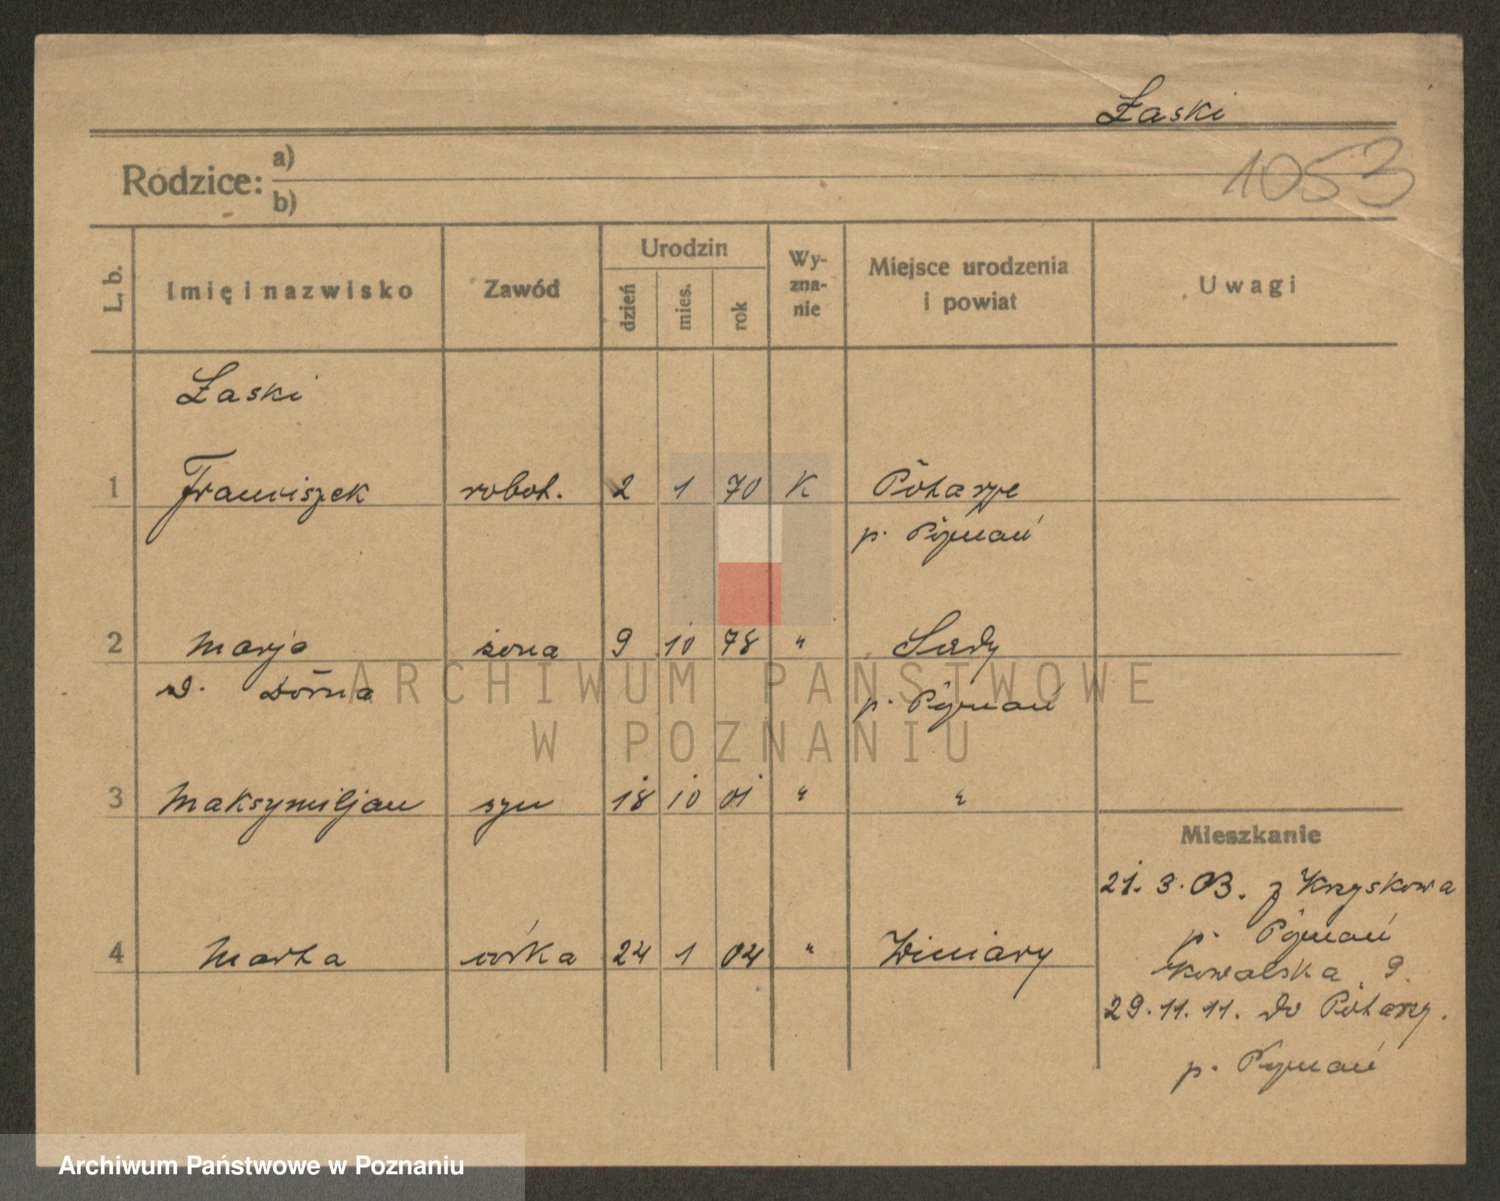 Łaski
1053
Rodzice: a)
b)
L. b. Imię i nazwisko Zawód Urodzin dzień mies. rok Wyznanie Miejsce urodzenia i powiat Uwagi
Łaski
1 Franciszek robot. 2 1 70 K
p. Poznań
2 Marja żona 9 10 78 " Sady
p. Poznań
3 Maksymiljan syn 18 10 01 " "
Mieszkanie
21. 3. 03. z Krzyskowa
p. Poznań
4 Marta córka 24 1 04 " Winiary
Kowalska 9.
29. 11. 11. do
p. Poznań
ARCHIWUM PAŃSTWOWE
W POZNANIU
Archiwum Państwowe w Poznaniu